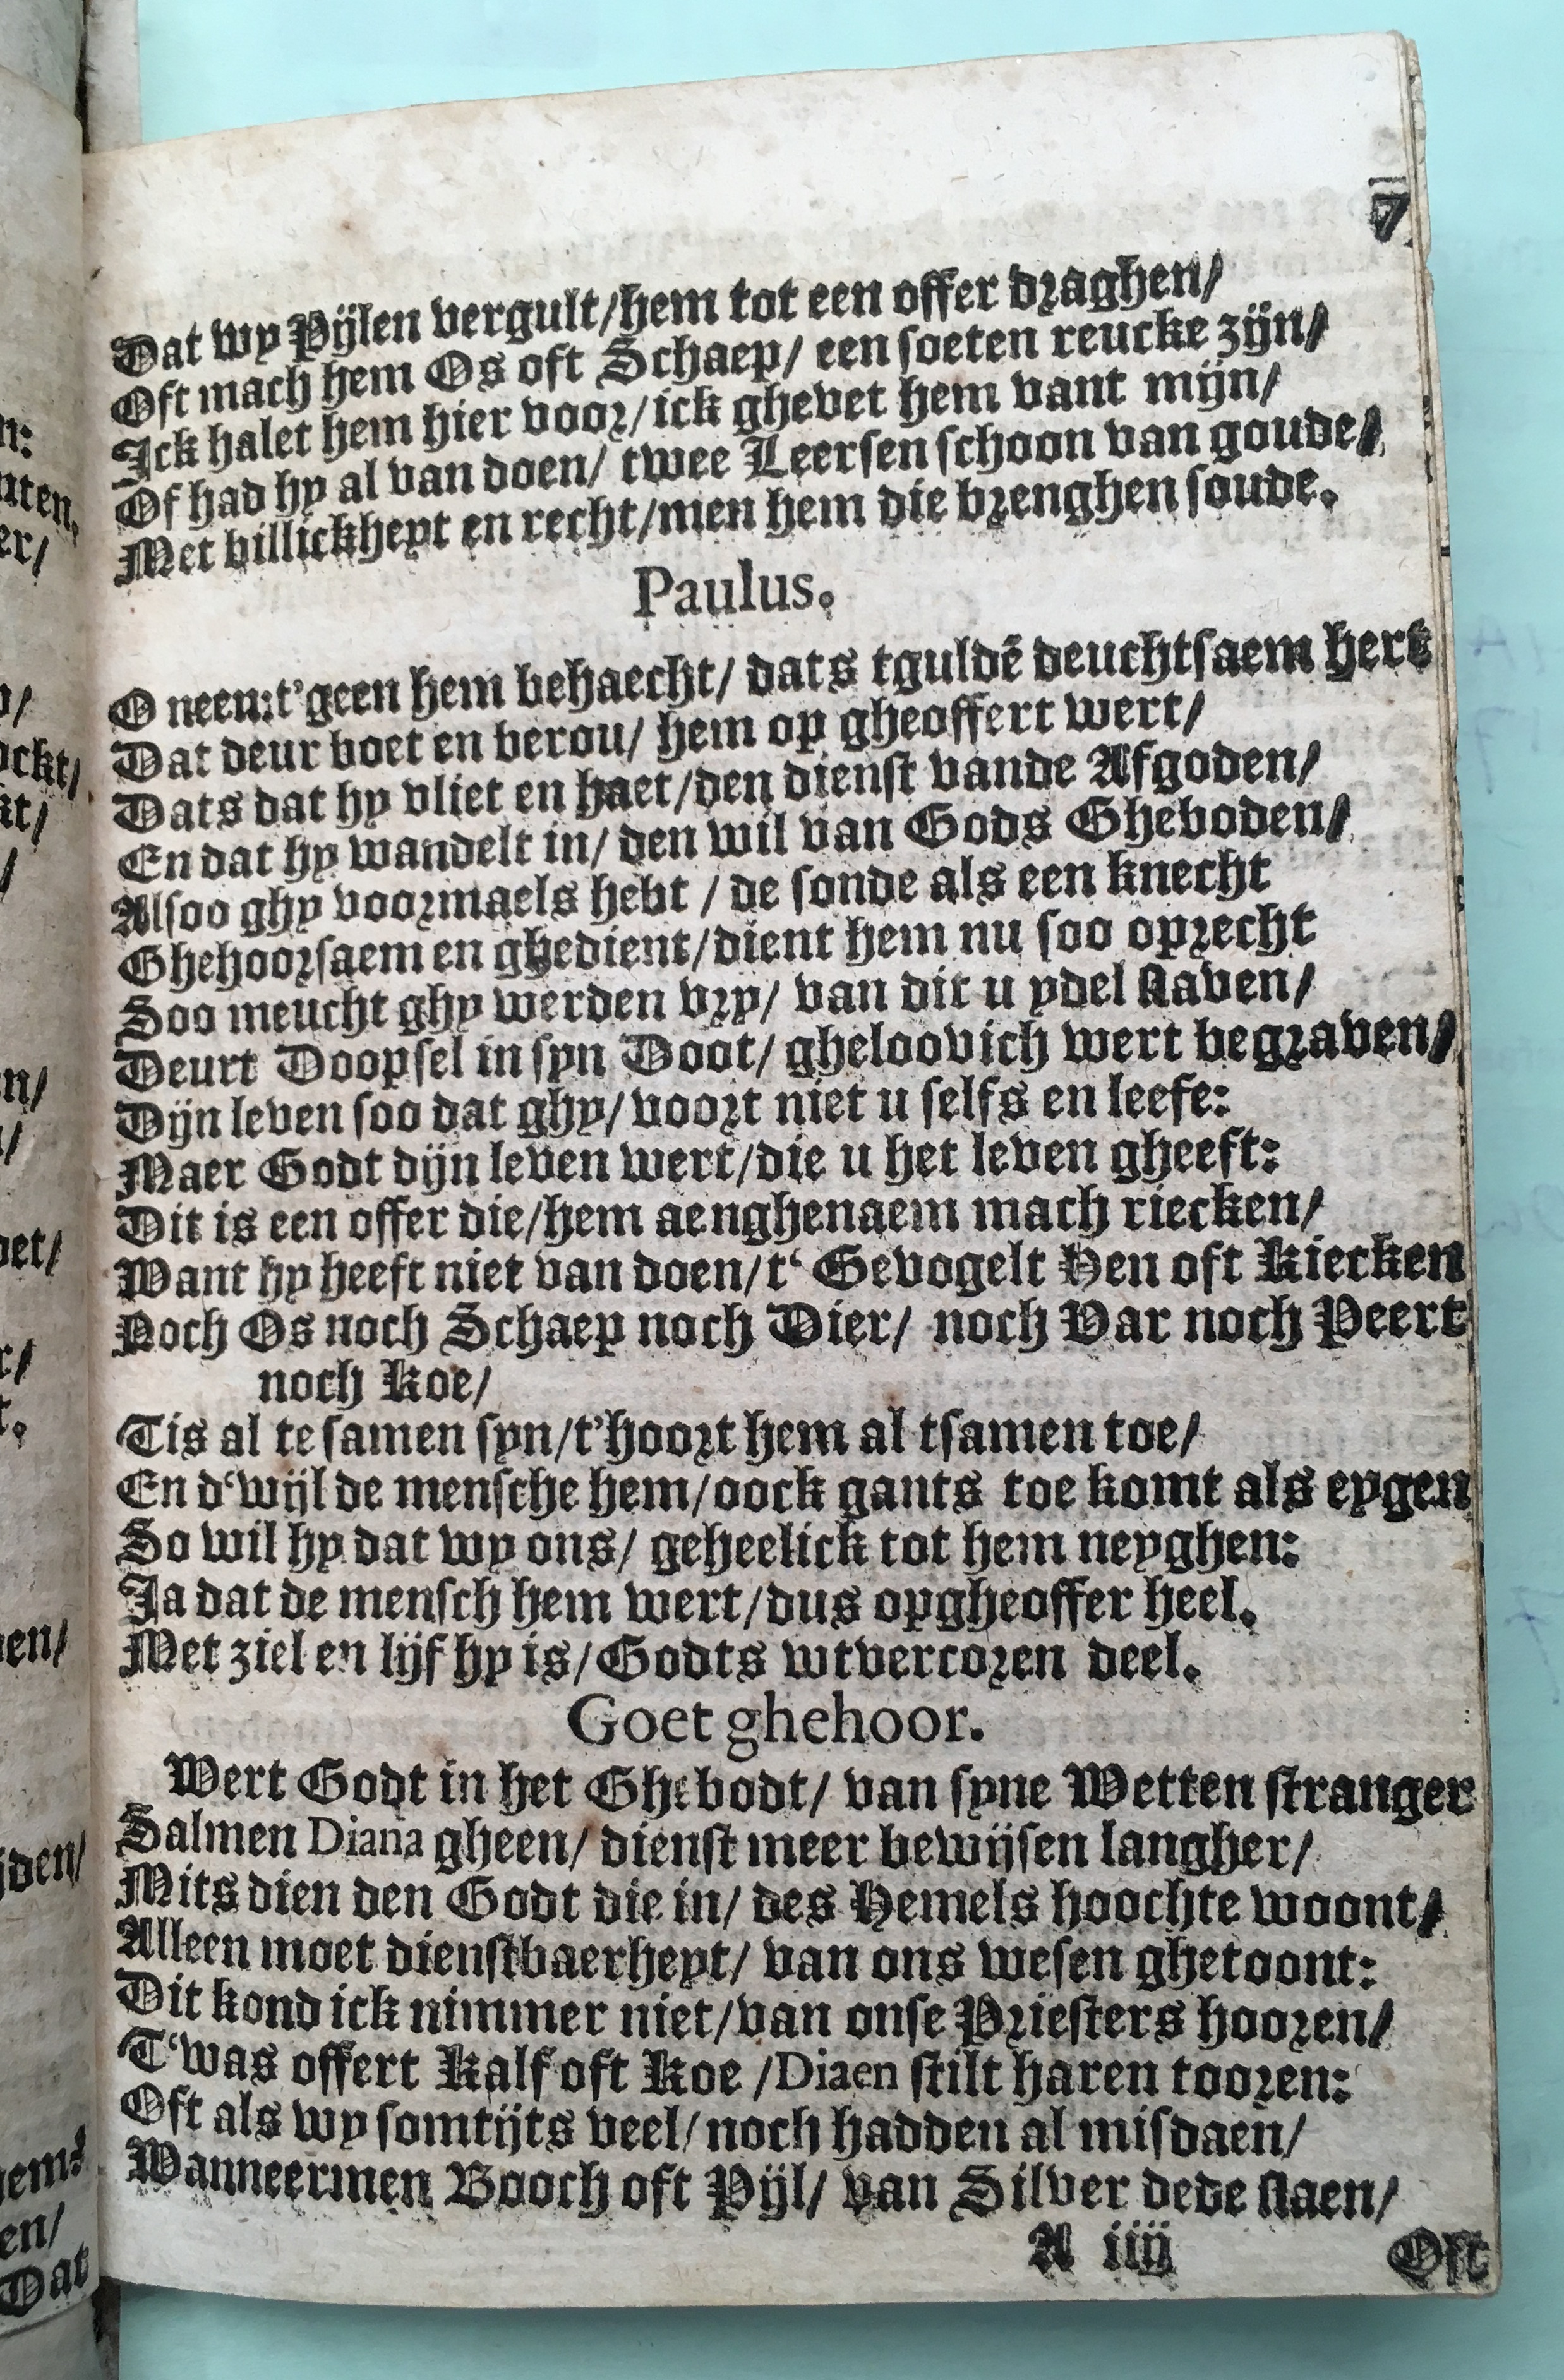 7
Dat wy Pijlen vergult/hem tot een offer draghen/
Oft mach hem Os oft Schaep/ een soeten reucke zijn/
Ick halet hem hier voor/ick ghevet hem vant mijn/
Of had hy al van doen/ twee Leersen schoon van goude/
Met billickheyt en recht/men hem die brenghen soude.
Paulus.
O neen:t'geen hem behaecht/ dats tguldē deuchtsaem hert
Dat deur boet en berou/ hem op gheoffert wert/
Dats dat hy vliet en haet/den dienst vande Afgoden/
En dat hy wandelt in/ den wil van Gods Gheboden/
Alsoo ghy voormaels hebt / de sonde als een knecht
Ghehoorsaem en ghedient/dient hem nu soo oprecht
Soo meucht ghy werden vry/ van dit u ydel slaven/
Deurt Doopsel in syn Doot/ gheloovich wert begraven/
Dijn leven soo dat ghy/ voort niet u selfs en leefe:
Maer Godt dijn leven wert/die u het leven gheeft:
Dit is een offer die/hem aenghenaem mach riecken/
Want hy heeft niet van doen/t‘ Gevogelt Hen oft Kiecken
Noch Os noch Schaep noch Dier/ noch Var noch Peert
noch Koe/
Tis al te samen syn/t'hoort hem al tsamen toe/
En d‘wijl de mensche hem/oock gants toe komt als eygen
So wil hy dat wy ons/ geheelick tot hem neyghen:
Ja dat de mensch hem wert/dus opgheoffer heel.
Met ziel en lijf hy is/Godts wtvercoren deel.
Goet ghehoor.
Wert Godt in het Ghebodt/ van syne Wetten stranger
Salmen Diana gheen/ dienst meer bewijsen langher/
Mits dien den Godt die in/ des Hemels hoochte woont/
Alleen moet dienstbaerheyt/ van ons wesen ghetoont:
Dit kond ick nimmer niet/van onse Priesters hooren/
T‘was offert Kalf oft Koe /Diaen stilt haren tooren:
Oft als wy somtijts veel/ noch hadden al misdaen/
Wanneermen Booch oft Pijl/ van Silver dede slaen/
A iiij
Oft
n:
nten.
er/
p/
ockt/
kt/
/
n/
/
oet/
r/
t.
en/
jden/
em:
en/
Dat